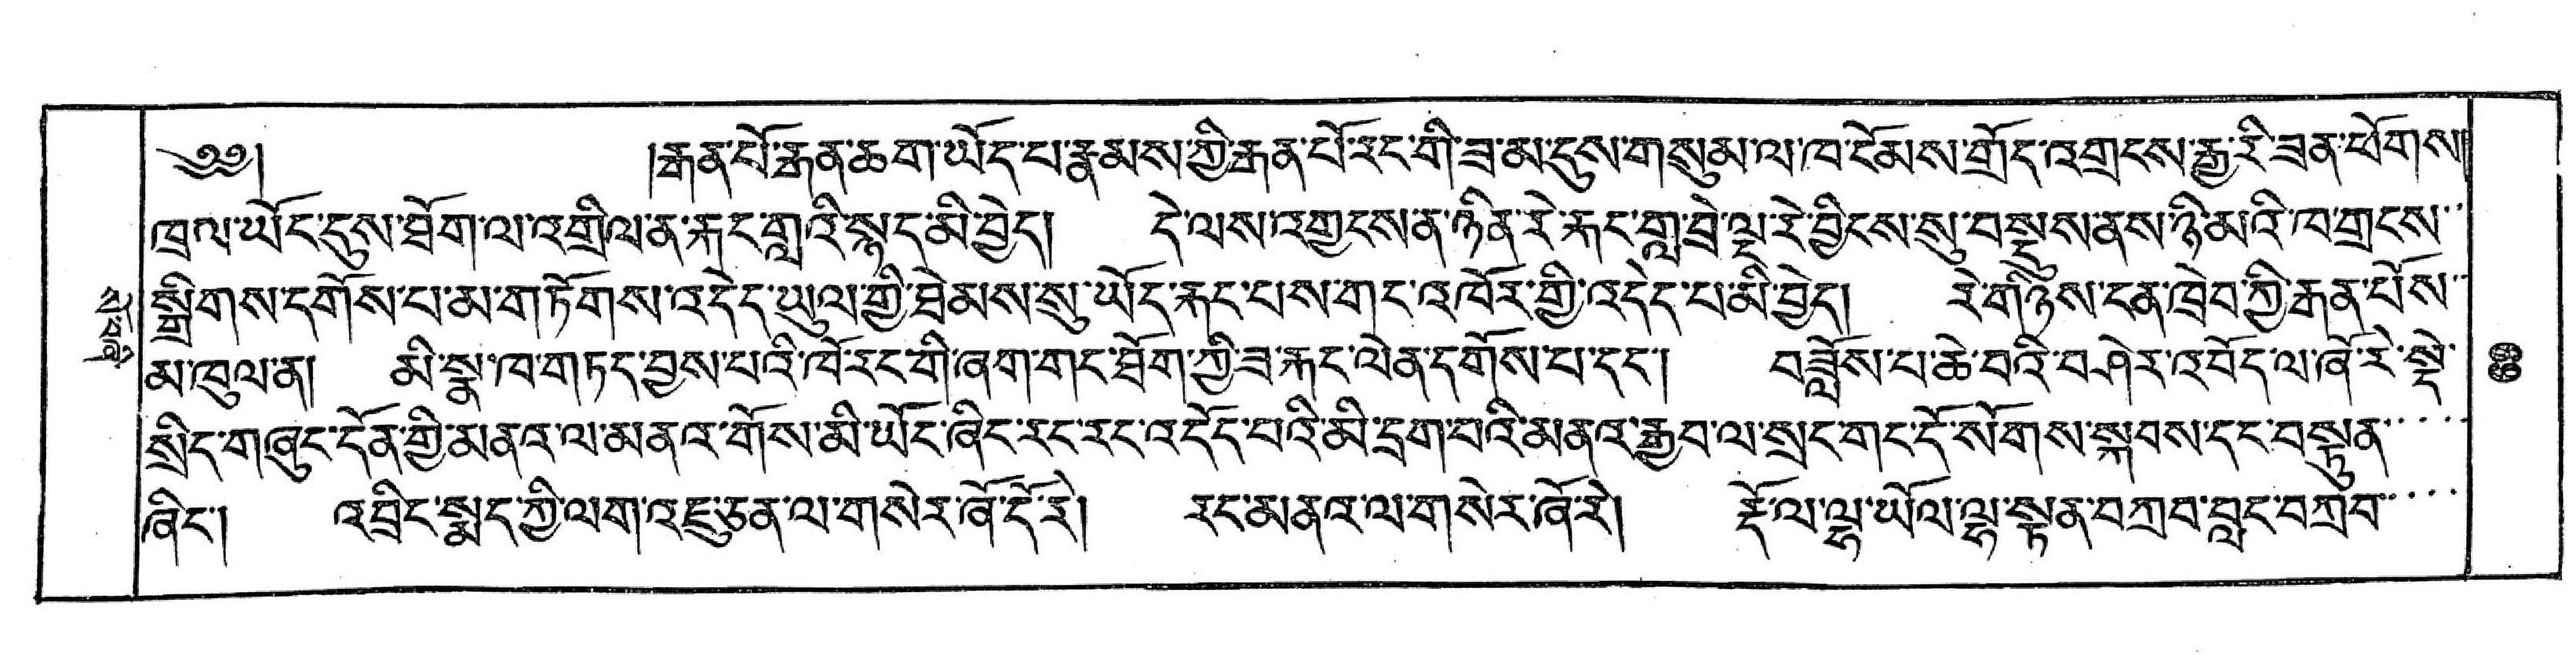 ༄༅། །རྒན་པོ་རྒན་ཆག་ཡོད་པ་རྣམས་ཀྱི་རྒན་པོ་རང་གི་ཟ་མ་དུས་གསུམ་ལ་ཁ་ངོམས་གྲོད་འགྲངས་རྒྱ་རི་ཟན་ཕོགས།
ཁྲལ་ཡོང་དུས་ཐོག་ལ་འགྲིལ་ན་རྐང་གླའི་སྐད་མི་བྱེད། དེ་ལས་འགྱངས་ན་ཉིན་རེ་རྐང་གླ་བྲེ་ལྔ་རེ་བྱིངས་སུ་བསྡུས་ནས་ཉི་མའི་ཁ་གྲངས་
སྒྲིགས་དགོས་པ་མ་གཏོགས་འདེད་ཡུལ་གྱི་ཐེམས་སུ་ཡོད་རྐང་པས་གང་འཁོར་གྱི་འདེད་པ་མི་བྱེད། རེ་གཉིས་ངན་ཁྲེབ་ཀྱི་རྒན་པོས་
མ་ཁུལ་ན། མི་སྣ་ཁ་གཏད་བྱས་པའི་ཁོ་རང་གི་ཞག་གང་ཐོག་ཀྱི་ཟ་རྐང་ལེན་དགོས་པ་དང་། བཟློས་པ་ཆེ་བའི་བཤེར་འབོད་ལ་ཞོ་རེ་སྡེ་
སྲིད་གཞུང་དོན་གྱི་མནའ་ལ་མནའ་གོས་མི་ཡོང་ཞིང་རང་རང་འདོད་པའི་མི་དྲག་པའི་མནའ་རྒྱབ་ལ་སྲང་གང་དོ་སོགས་སྐབས་དང་བསྟུན་
ཞིང་། འབྲིང་སྨད་ཀྱི་ལག་འཇུ་ཅན་ལ་གསེར་ཞོ་དོ་རེ། རང་མནའ་ལ་གསེར་ཞོ་རེ། རྡོ་ལ་ལྷ་ཡོལ་ལྷ་སྟན་བཀྲབ་བླང་བཀྲབ་